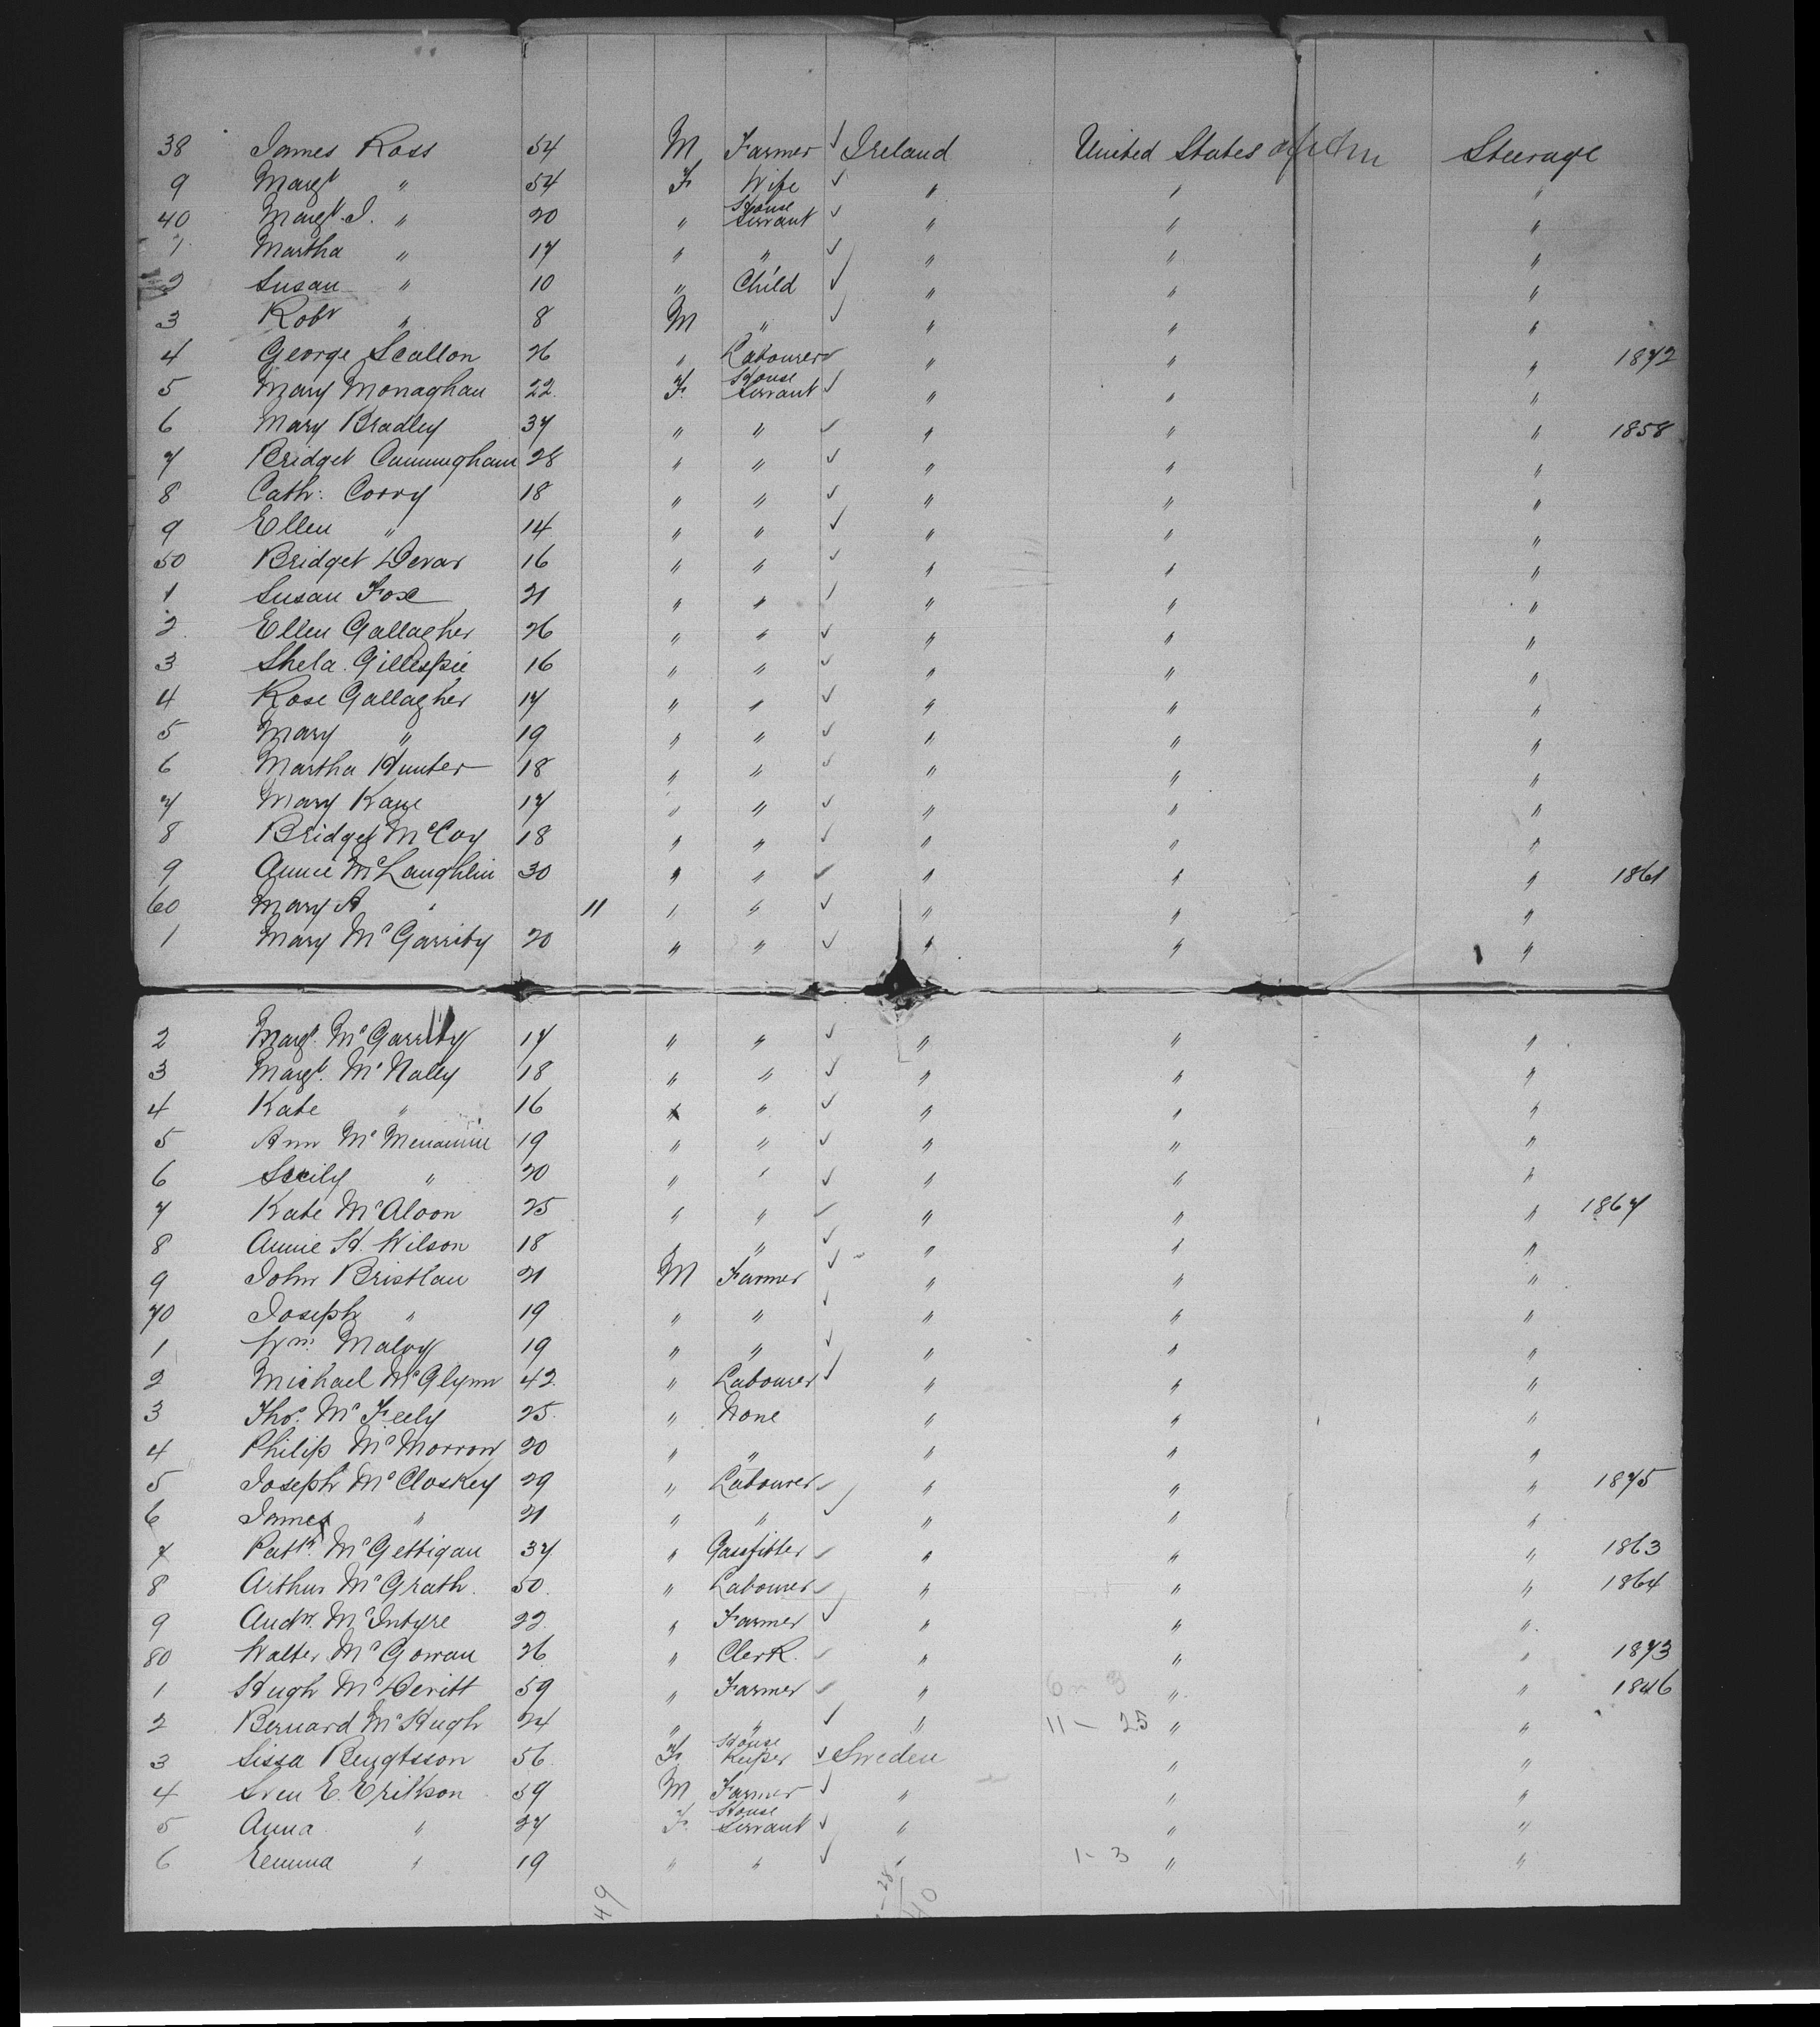 38 James Ross 54 M Farmer ✓ Ireland United States of Am Steerage
9 Margt " 54 F Wife ✓ " " "
40 Margt J. " 20 " House Servant ✓ " " "
1 Martha " 17 " " ✓ " " "
2 Susan " 10 " Child ✓ " " "
3 Robt " 8 M " ✓ " " "
4 George Scallon 26 " Labourer ✓ " " " 1872
5 Mary Monaghan 22 F. House Servant ✓ " " "
6 Mary Bradley 37 " " ✓ " " " 1858
7 Bridget Cunningham 28 " " ✓ " " "
8 Cath: Corry 18 " " ✓ " " "
9 Ellen " 14 " " ✓ " " "
50 Bridget Devar 16 " " ✓ " " "
1 Susan Fox 21 " " ✓ " " "
2 Ellen Gallagher 26 " " ✓ " " "
3 Shela Gillespie 16 " " ✓ " " "
4 Rose Gallagher 17 " " ✓ " " "
5 Mary " 19 " " ✓ " " "
6 Martha Hunter 18 " " ✓ " " "
7 Mary Kane 17 " " ✓ " " "
8 Bridget McCoy 18 " " ✓ " " "
9 Annie McLaughlin 30 " " ✓ " " " 1861
60 Mary A " 11 " " ✓ " " "
1 Mary McGarrity 20 " " ✓ " " "
2 Margt. McGarrity 17 " " ✓ " " "
3 Margt. McNally 18 " " ✓ " " "
4 Kate " 16 " " ✓ " " "
5 Ann McMenamin 19 " " ✓ " " "
6 Sicily " 20 " " ✓ " " "
7 Kate McAloon 25 " " ✓ " " " 1867
8 Annie H. Wilson 18 " " ✓ " " "
9 John Brisllau 21 M Farmer ✓ " " "
70 Joseph " 19 " " ✓ " " "
1 Wm. Maloy 19 " " ✓ " " "
2 Michael McGlynn 42 " Labourer ✓ " " "
3 Thos. McFeely 25 " None " " "
4 Philip McMorrow 20 " " " " "
5 Joseph McCloskey 29 " Labourer ✓ " " " 1875
6 James " 21 " " ✓ " " "
7 Patk. McGettigan 37 " Gassfitter ✓ " " " 1863
8 Arthur McGrath 50 " Labourer ✓ " " " 1864
9 Andw. McIntyre 22 " Farmer ✓ " " "
80 Walter McGowan 26 " Clerk. ✓ " " " 1873
1 Hugh McDevitt 59 " Farmer ✓ " " " 1846
2 Bernard McHugh 24 " " ✓ " 11 - 25 " "
3 Sissa Bengtsson 56 F. House Keeper ✓ Sweden " "
4 Sven E. Erikson 59 M Farmer ✓ " " "
5 Anna " 27 F. House Servant ✓ " " "
6 Emma " 19 " " ✓ " 1 - 3 " "
49 40